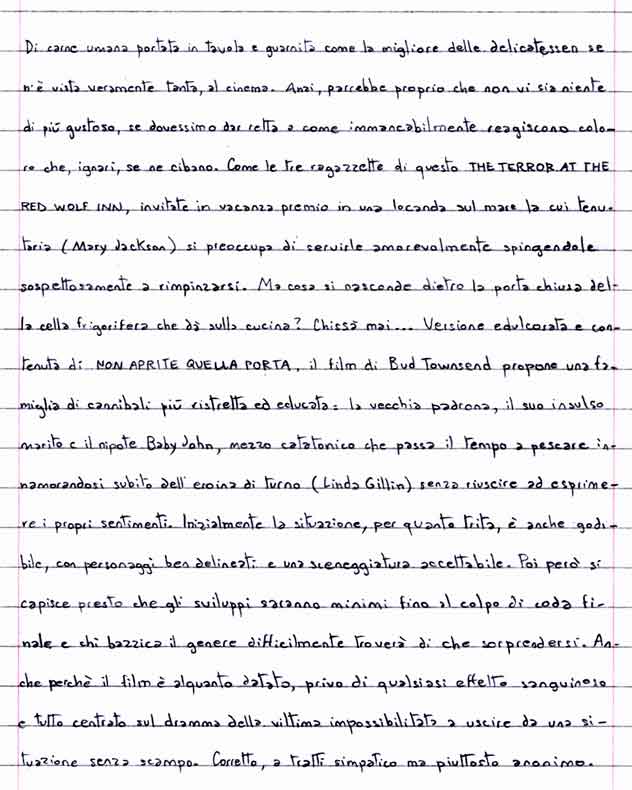 Di carne umana portata in tavola e guarnita come la migliore delle delicatessen se
n'è vista veramente tanta, al cinema. Anzi, parrebbe proprio che non vi sia niente
di più gustoso, se dovessimo dar retta a come immancabilmente reagiscono colo-
ro che, ignari, se ne cibano. Come le tre ragazzette di questo THE TERROR AT THE
RED WOLF INN, invitate in vacanza premio in una locanda sul mare la cui tenu-
taria (Mary Jackson) si preoccupa di servirle amorevolmente spingendole
sospettosamente a rimpinzarsi. Ma cosa si nasconde dietro la porta chiusa del-
la cella frigorifera che dà sulla cucina? Chissà mai... Versione edulcorata e con-
tenuta di NON APRITE QUELLA PORTA, il film di Bud Townsend propone una fa-
miglia di cannibali più ristretta ed educata: la vecchia padrona, il suo insulso
marito e il nipote Baby John, mezzo catatonico che passa il tempo a pescare in-
namorandosi subito dell'eroina di turno (Linda Gillin) senza riuscire ad esprime-
re i propri sentimenti. Inizialmente la situazione, per quanto trita, è anche godi-
bile, con personaggi ben delineati e una sceneggiatura accettabile. Poi però si
capisce presto che gli sviluppi saranno minimi fino al colpo di coda fi-
nale e chi bazzica il genere difficilmente troverà di che sorprendersi. An-
che perchè il film è alquanto datato, privo di qualsiasi effetto sanguinoso
e tutto centrato sul dramma della vittima impossibilitata a uscire da una si-
tuazione senza scampo. Corretto, a tratti simpatico ma piuttosto anonimo.